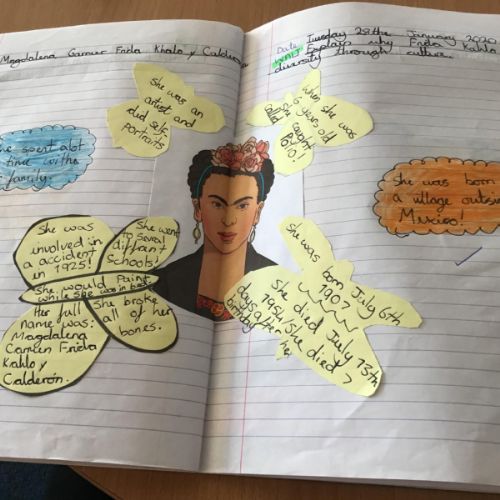 Magdalena Carmen Frida Khalo y Calderón
She was an
artist and
did self
portraits
She spent alot
time with
family.
She was
involved in
a accident
in 1925!
She went
to Several
diffrant
Schools!
She would Paint
while she was in bed.
Her full
name was:
Magdalena
Carmen Frida
Kahlo y
Calderón.
She broke
all of her
bones.
Date Tuesday 28the January 2020
Explain why Frida Kahlo
diversity through culture.
when she was
6 years old
caught
Polio!
She was born
a village outsid
Mexico!
She was born July 6th
1907
She died July 13th
1954, She died 7
days after her
birthday